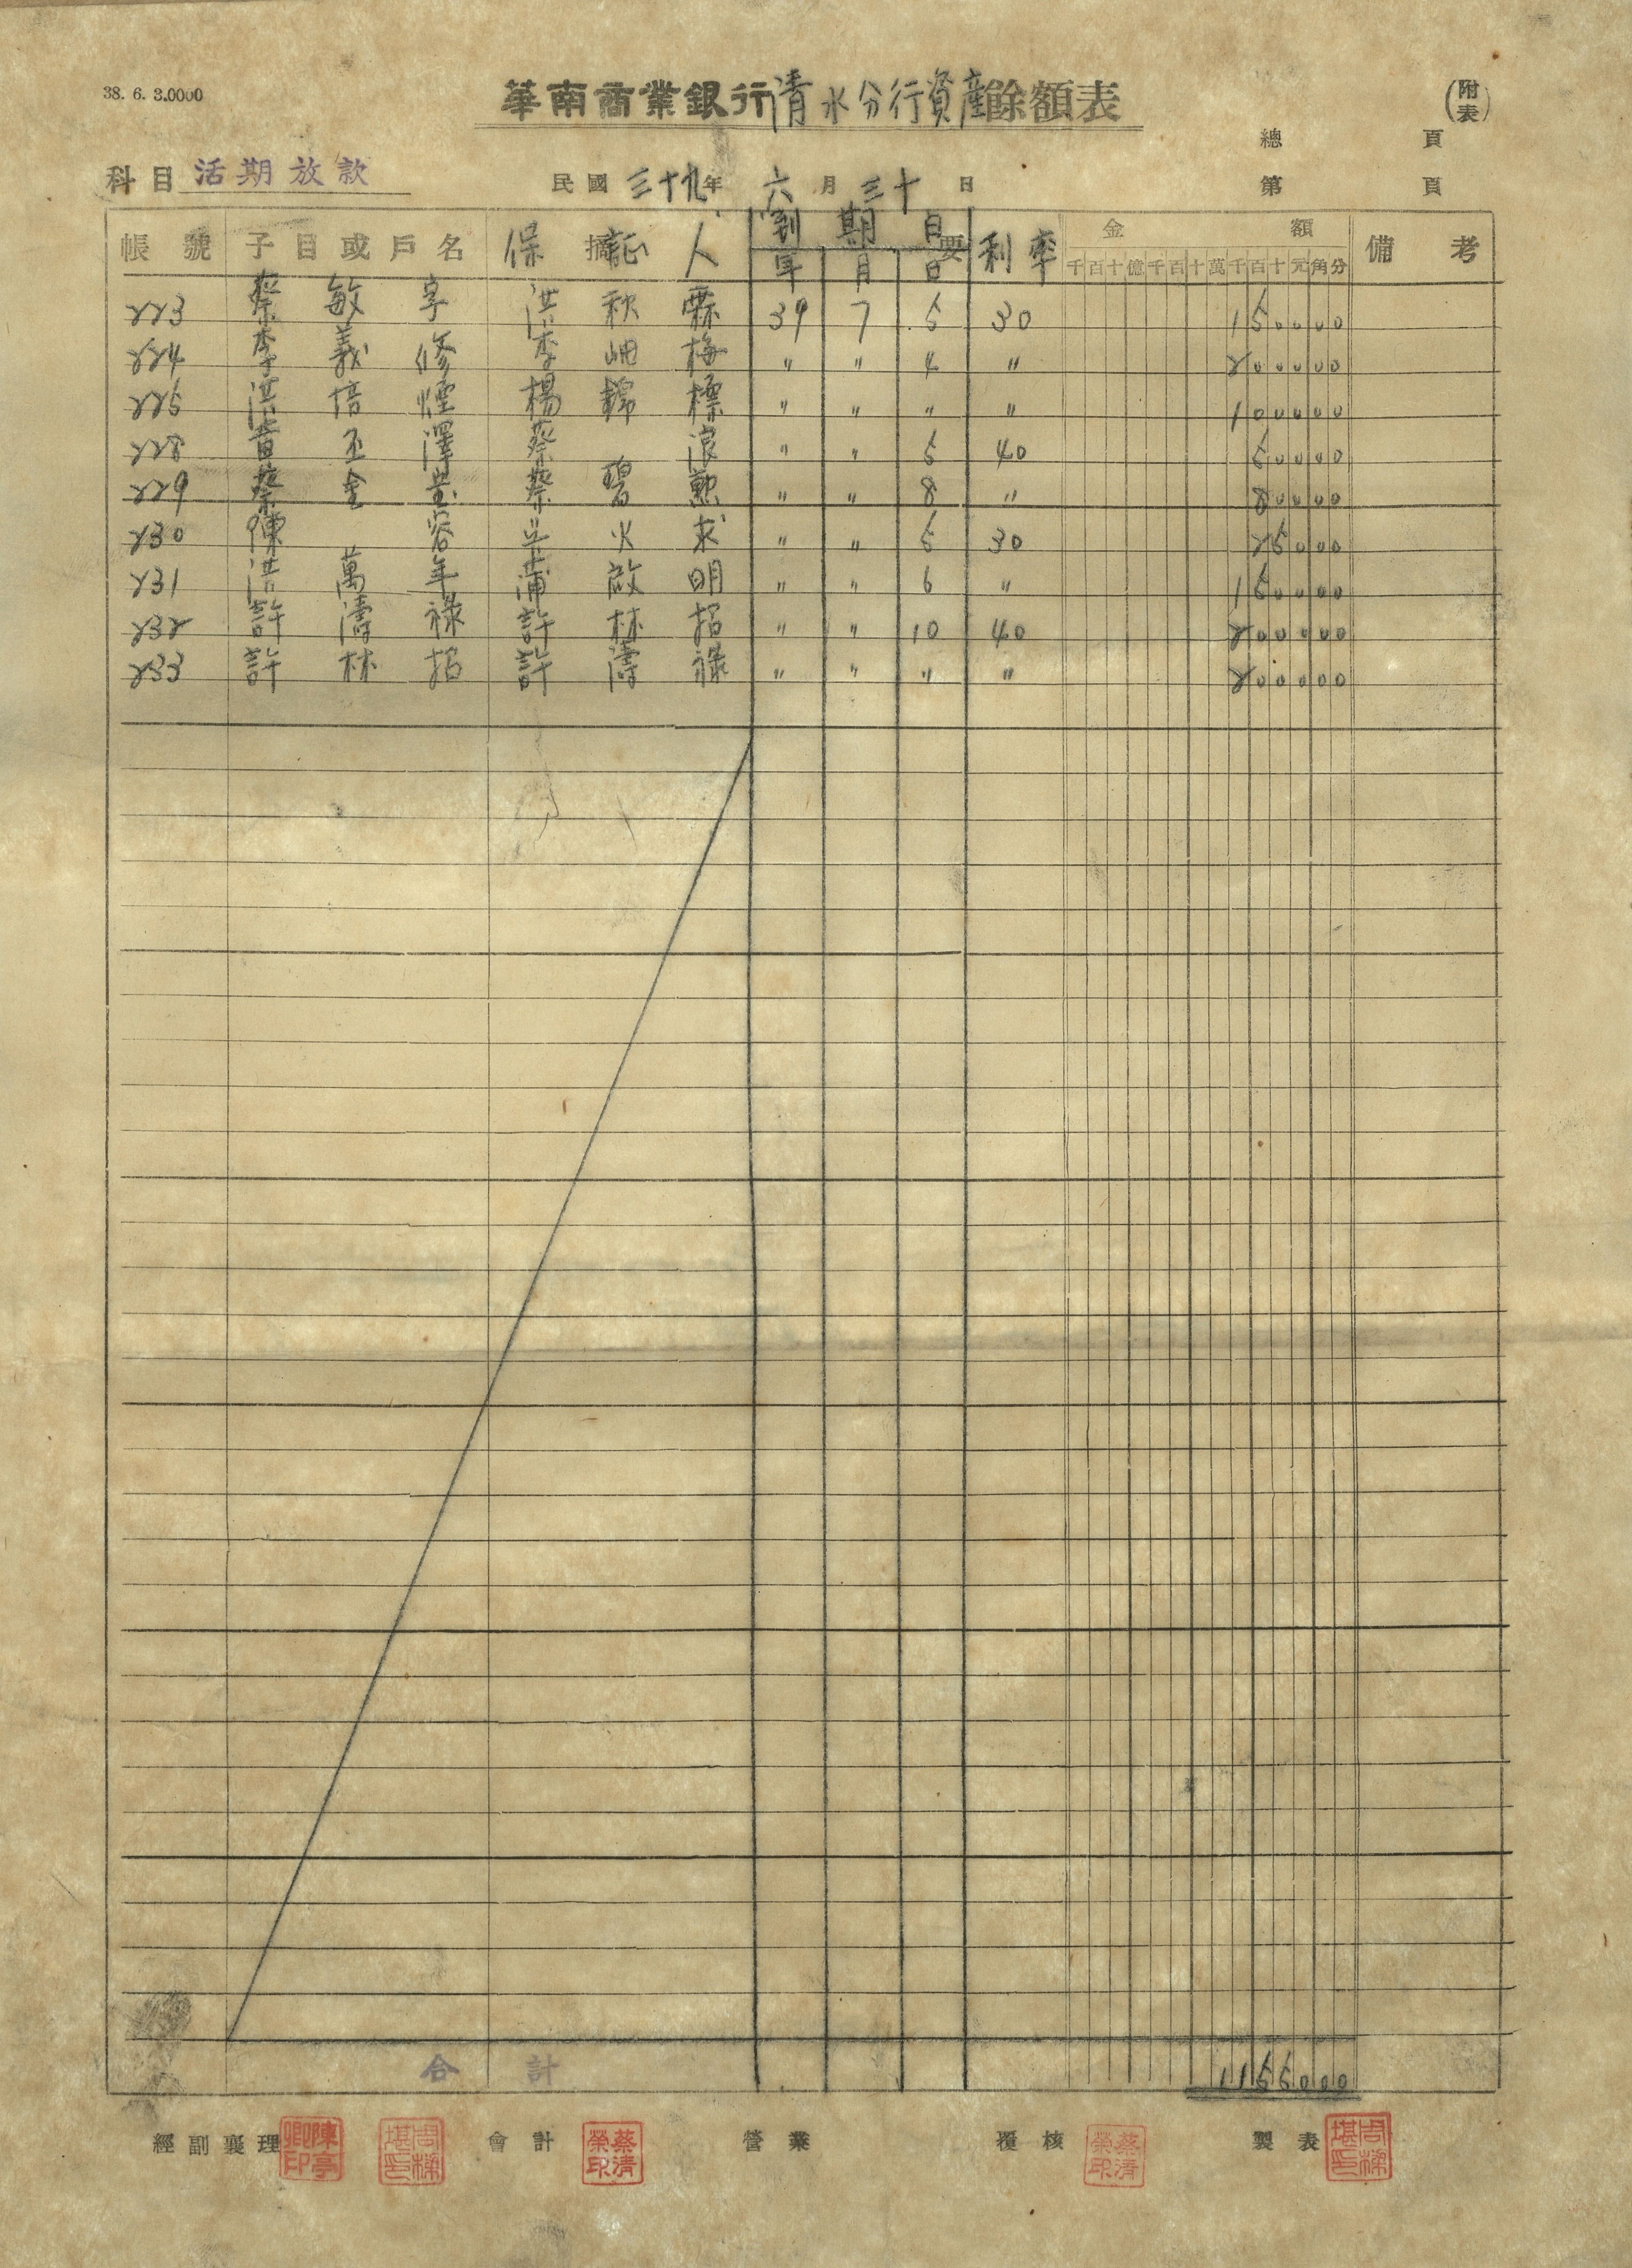 38. 6. 3.0000
華南商業銀行清水分行資產餘額表
(附表)
總 頁
科目 活期放款 民國三十九年六月三十日 第 頁
帳號 子目或戶名 摘要 保証人 到期日 年 月 日 利率 金額 備考
千百十億千百十萬千百十元角分
223 蔡敏享 洪秋霖 39 7 5 30 150000
224 李義修 李 梅 〃 〃 4 〃 200000
225 洪倍煙 楊錦標 〃 〃 〃 〃 100000
228 黃丕澤 蔡浪 〃 〃 5 40 50000
229 蔡金 蔡碧勲 〃 〃 8 〃 80000
230 陳容 火求 〃 〃 5 30 25000
231 洪萬年 啟明 〃 〃 6 〃 150000
232 許濤祿 許林招 〃 〃 10 40 200000
233 許林招 許濤祿 〃 〃 〃 〃 200000
合計 1155000
經副襄理 陳亭卿印 周梯堪印 會計 蔡清榮印 營業 覆核 蔡清榮印 製表 周梯堪印